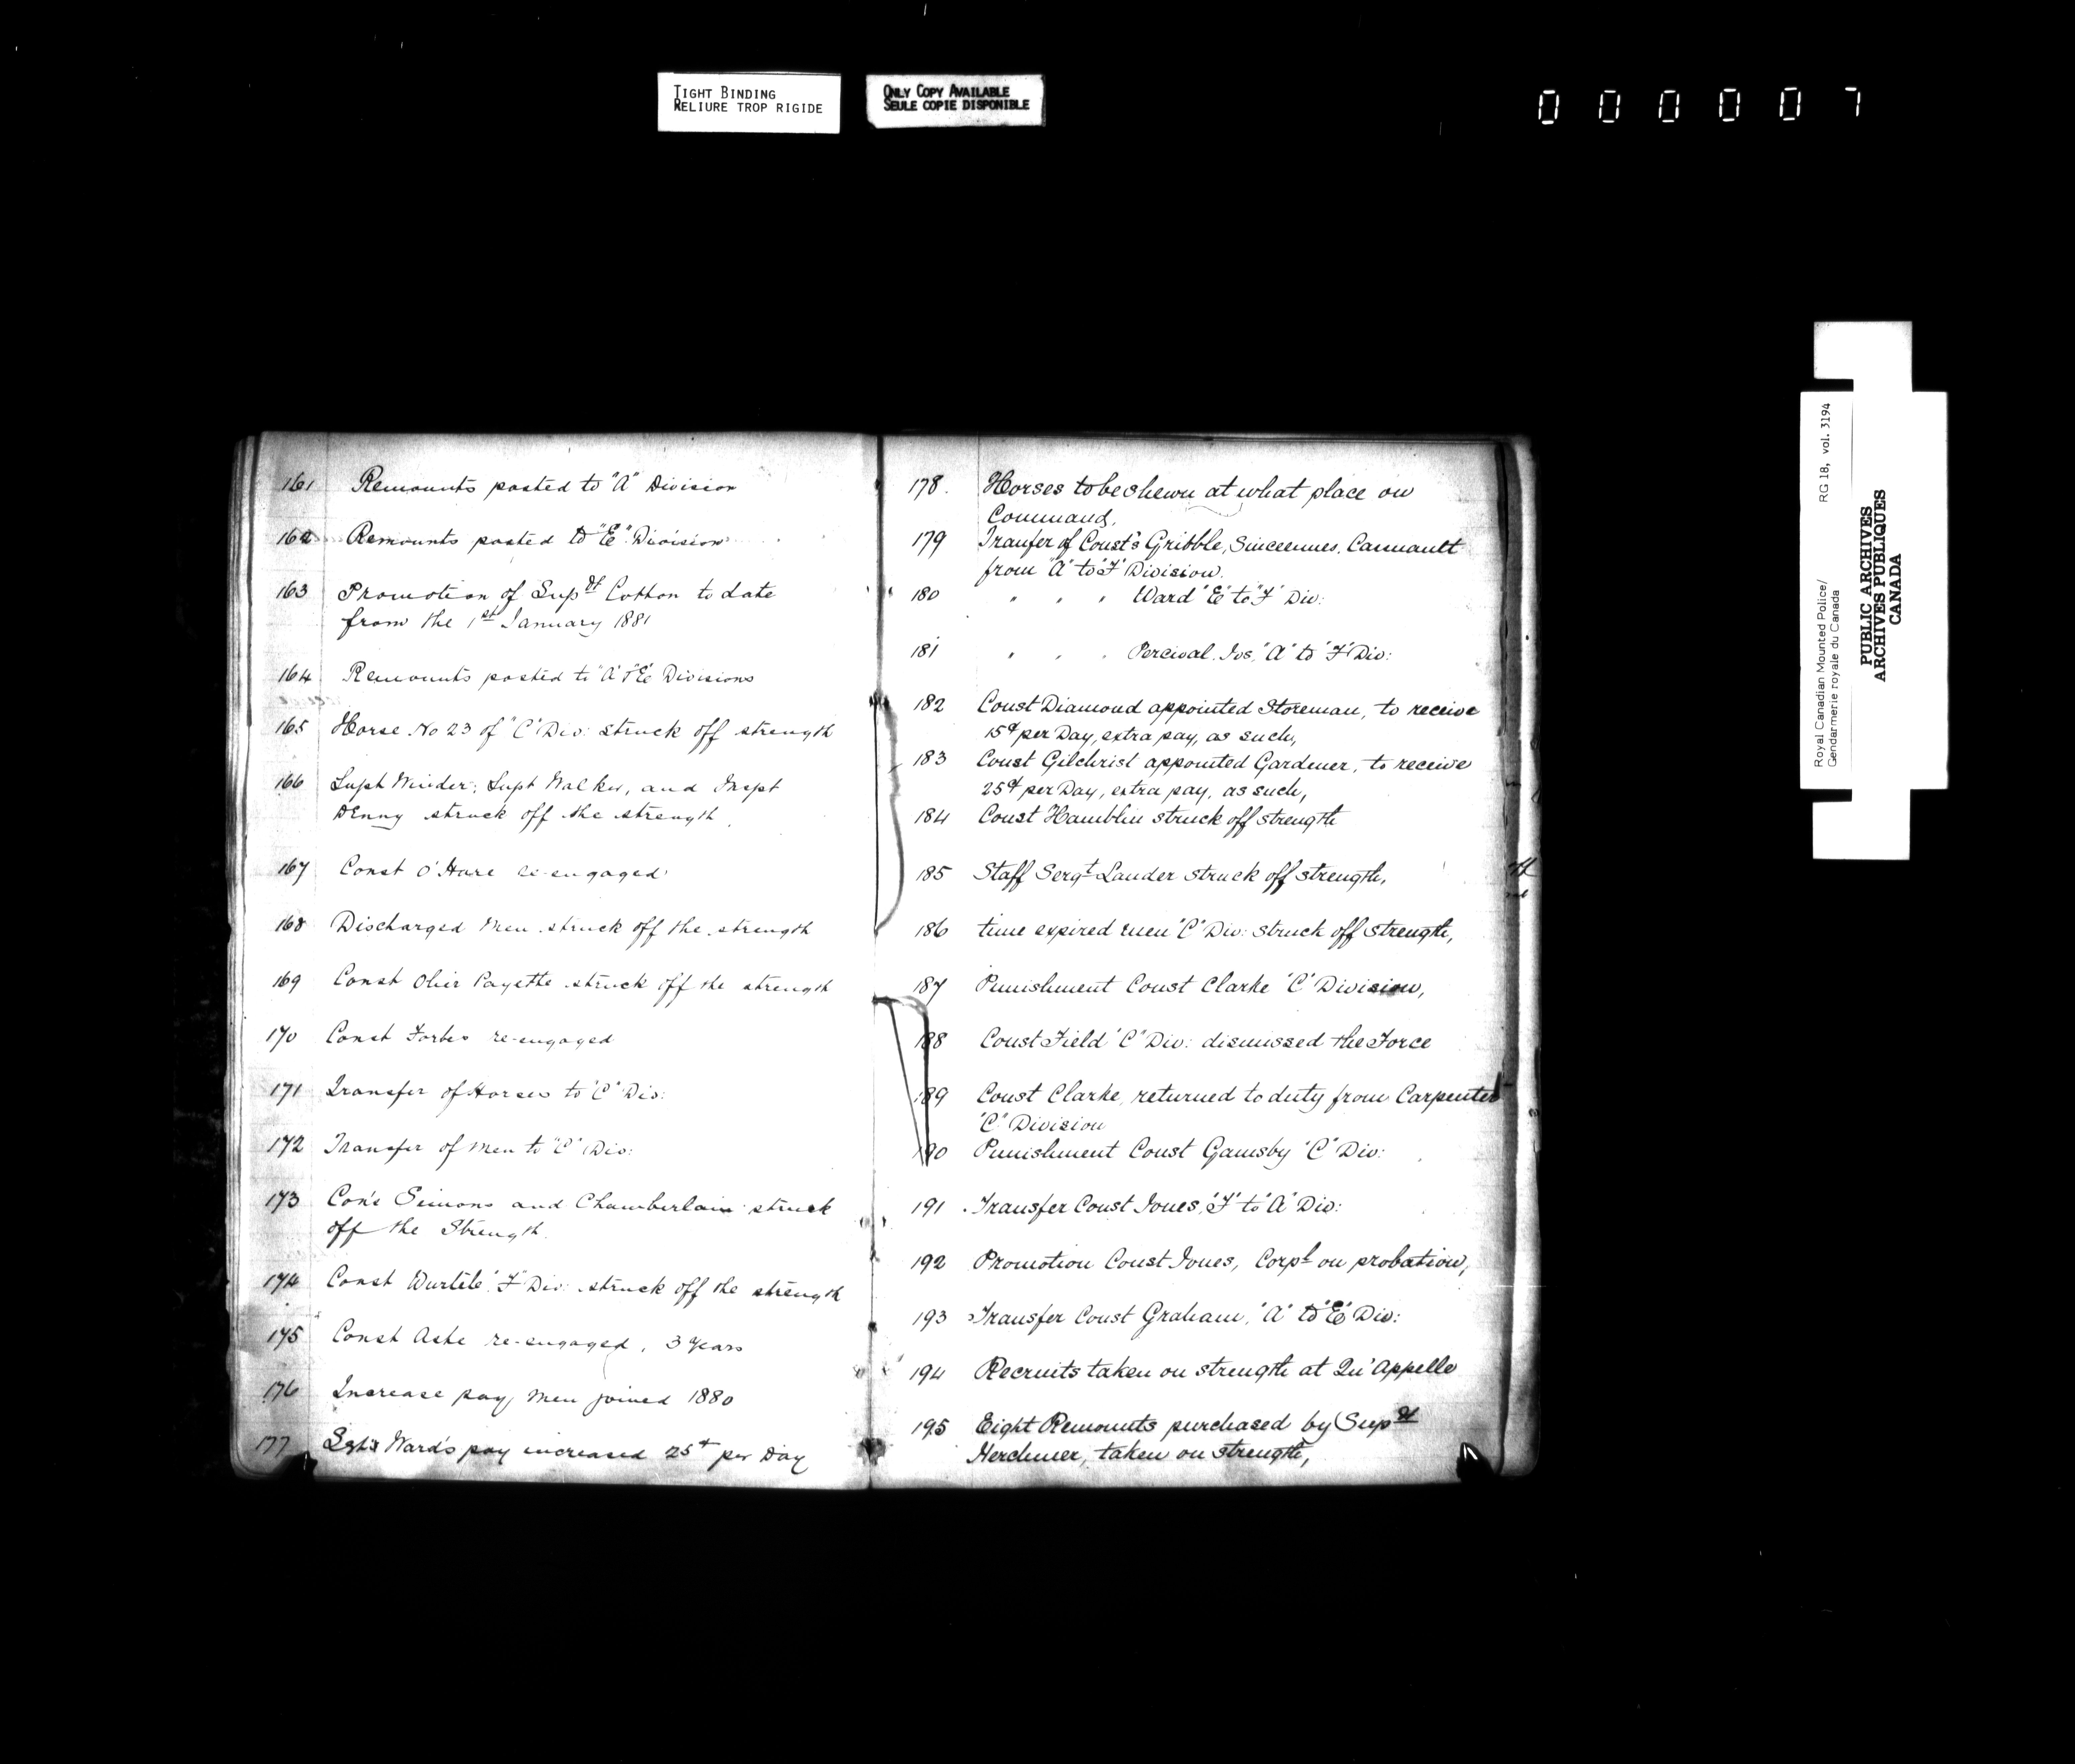 TIGHT BINDING
RELIURE TROP RIGIDE
ONLY COPY AVAILABLE
SEULE COPIE DISPONIBLE
000007
161 Remounts posted to "A" Division
162 Remounts posted to "E" Division
163 Promotion of Supdt Cotton to date
from the 1st January 1881
164 Remounts posted to "A" & "E" Divisions
165 Horse No 23 of "C" Div: struck off strength
166 Supt Winder, Supt Walker, and Inspt
Denny struck off the strength
167 Const O'Hare re-engaged
168 Discharged Men struck off the strength
169 Const Olivir Payette struck off the strength
170 Const Forbes re-engaged
171 Transfer of Horses to "C" Div:
172 Transfer of Men to "C" Div:
173 Con's Simons and Chamberlain struck
off the Strength
174 Const Wurtele "F" Div: struck off the strength
175 Const Ashe re-engaged, 3 Years
176 Increase pay, Men joined 1880
177 Ward's pay increased 25 per Day
178. Horses to be shewn at what place on
Command,
179 Tranfer of Const's Gribble, Sincennes, Cannault
from "A" to "F" Division.
180 " " " Ward "E" to "F" Div:
181 " " " Percival. Jos, "A" to "F" Div:
182 Const Diamond appointed Storeman, to receive
15¢ per Day, extra pay, as such,
183 Const Gilchrist appointed Gardener, to receive
25¢ per Day, extra pay, as such,
184 Const Hamblin struck off strength
185 Staff Sergt Lauder struck off strength,
186 time expired men "C" Div: struck off strength,
187 Punishment Const Clarke "C" Division,
188 Const Field "C" Div: dismissed the Force
189 Const Clarke, returned to duty from Carpenter
"C" Division
190 Punishment Const Gamsby "C" Div:
191 Transfer Const Jones, "F" to "A" Div:
192 Promotion Const Jones, Corpl on probation,
193 Transfer Const Graham, "A" to "E" Div:
194 Recruits taken on strength at Qu'Appelle
195 Eight Remounts purchased by Supdt
Herchmer, taken on strength,
Royal Canadian Mounted Police/
Gendarmerie royale du Canada
RG 18, vol. 3194
PUBLIC ARCHIVES
ARCHIVES PUBLIQUES
CANADA